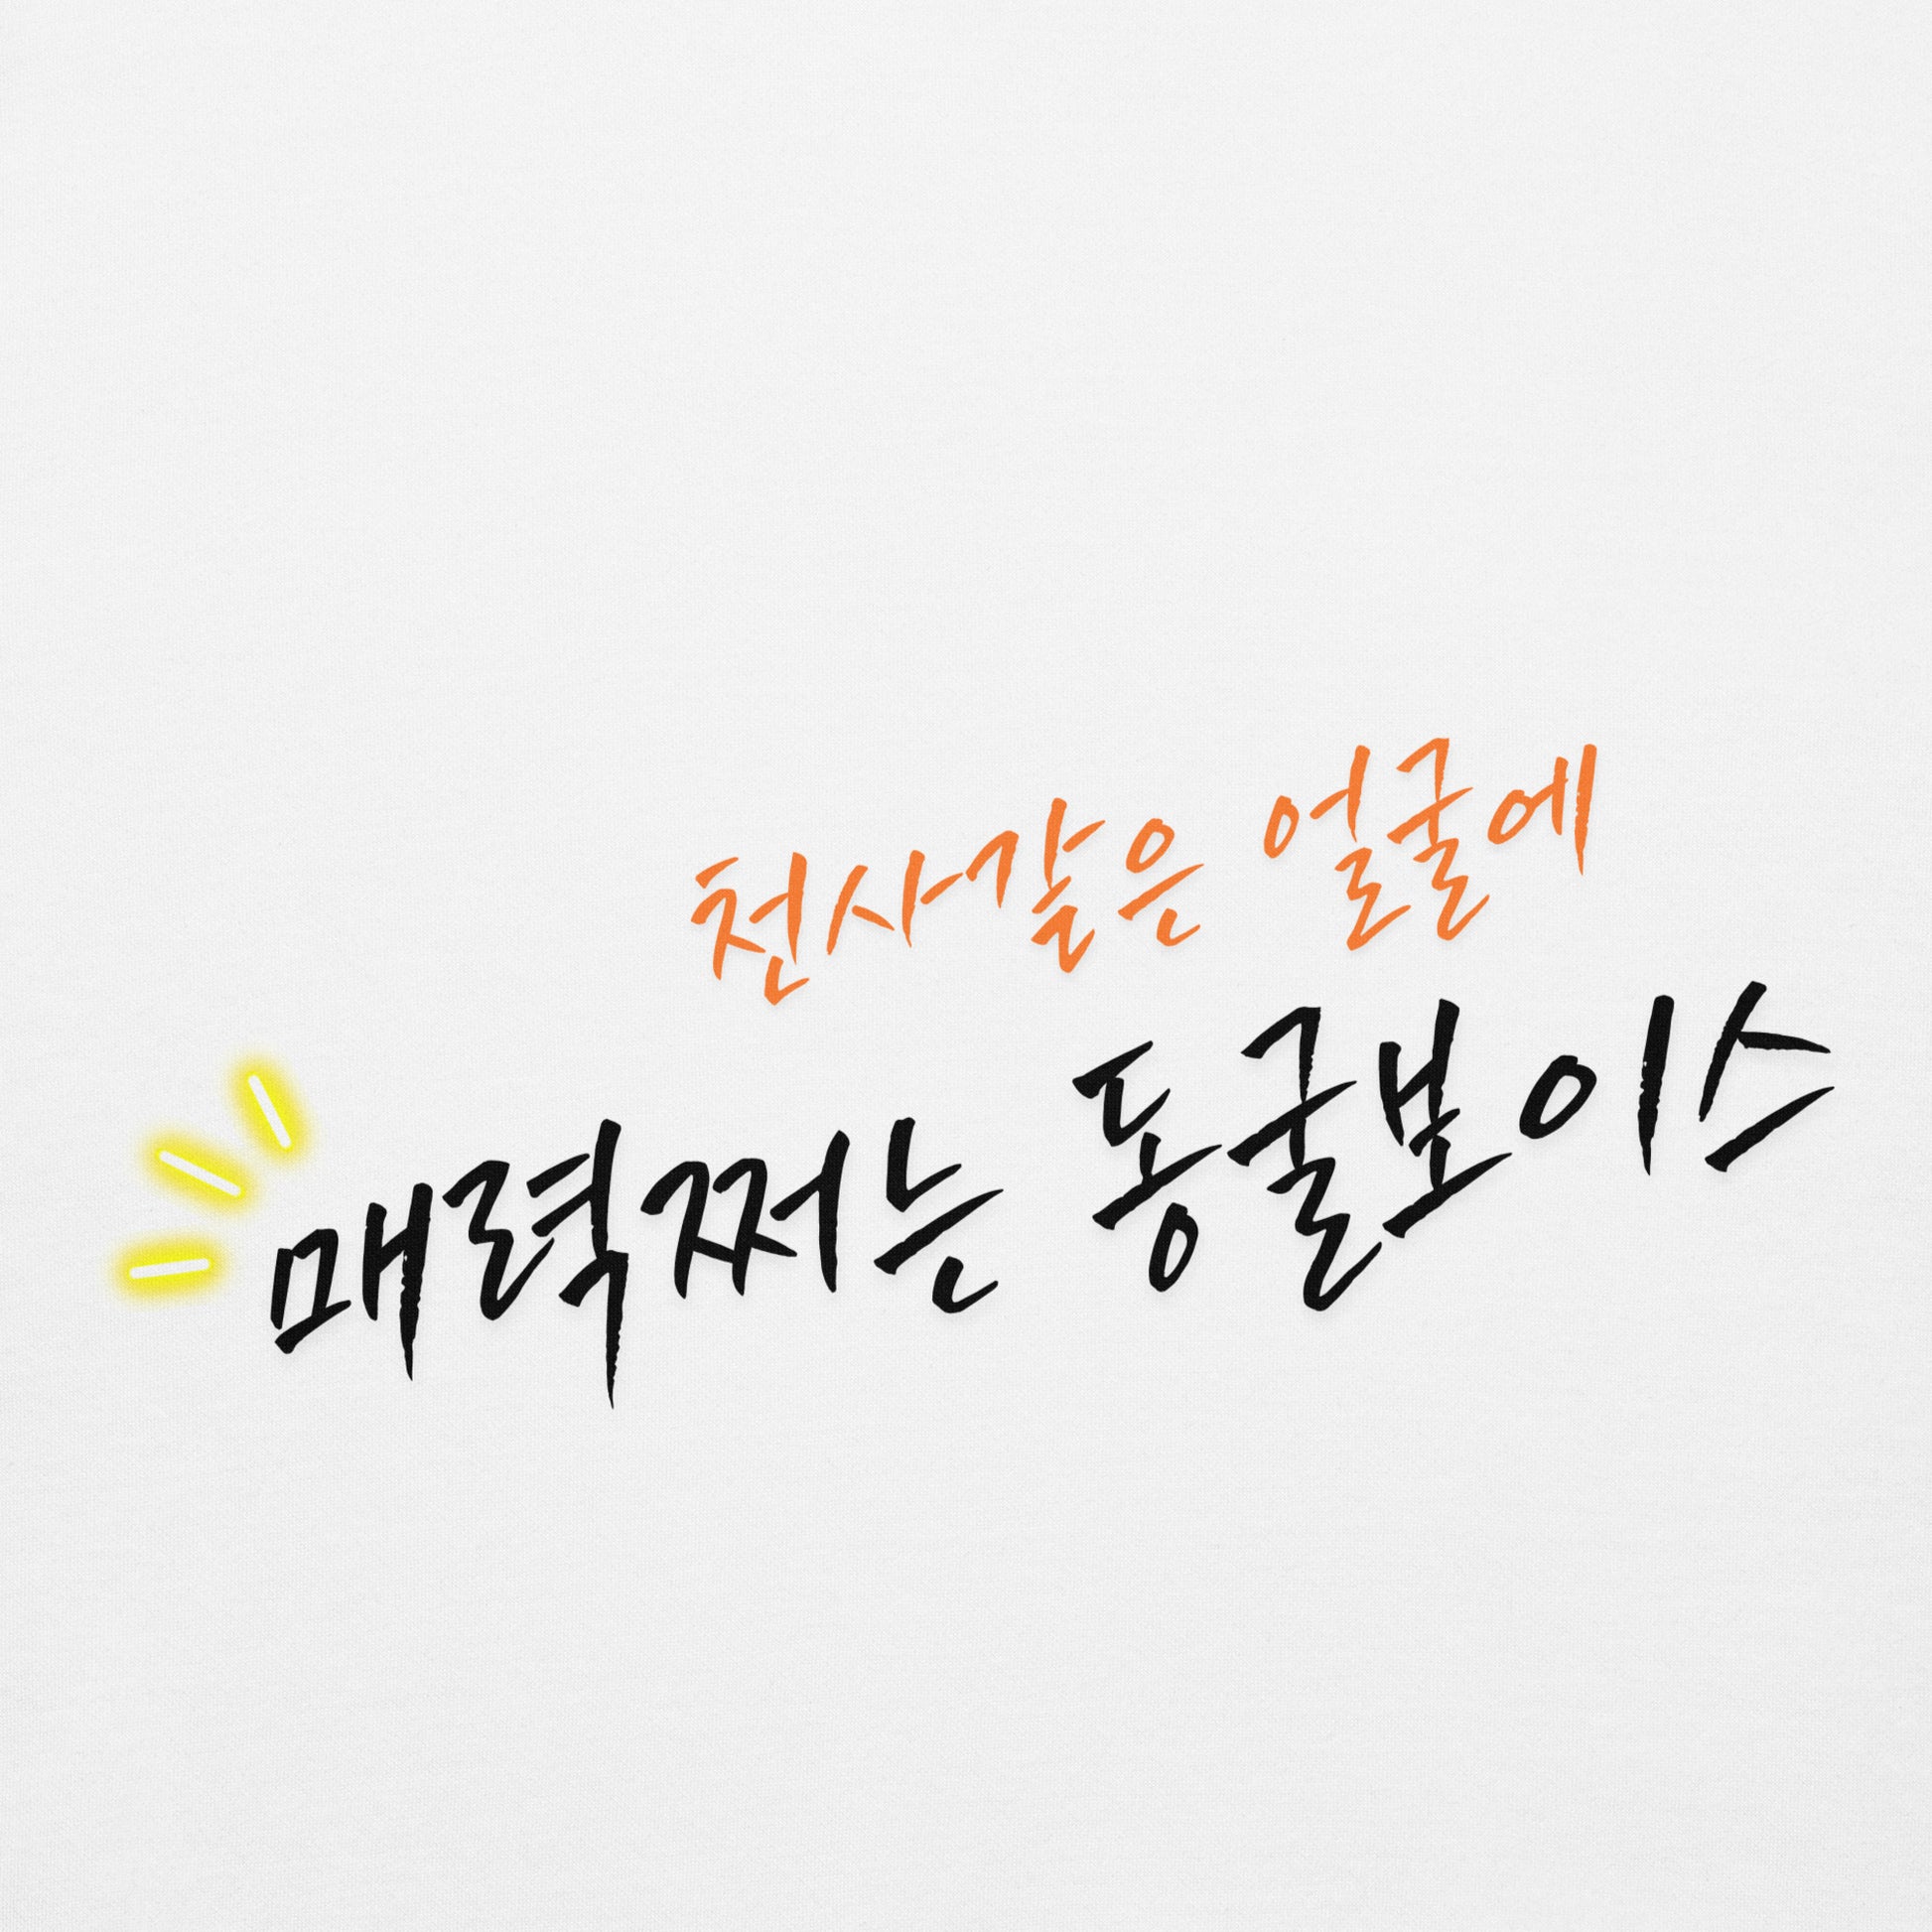 천사같은 얼굴에
매력쩌는 동굴보이스